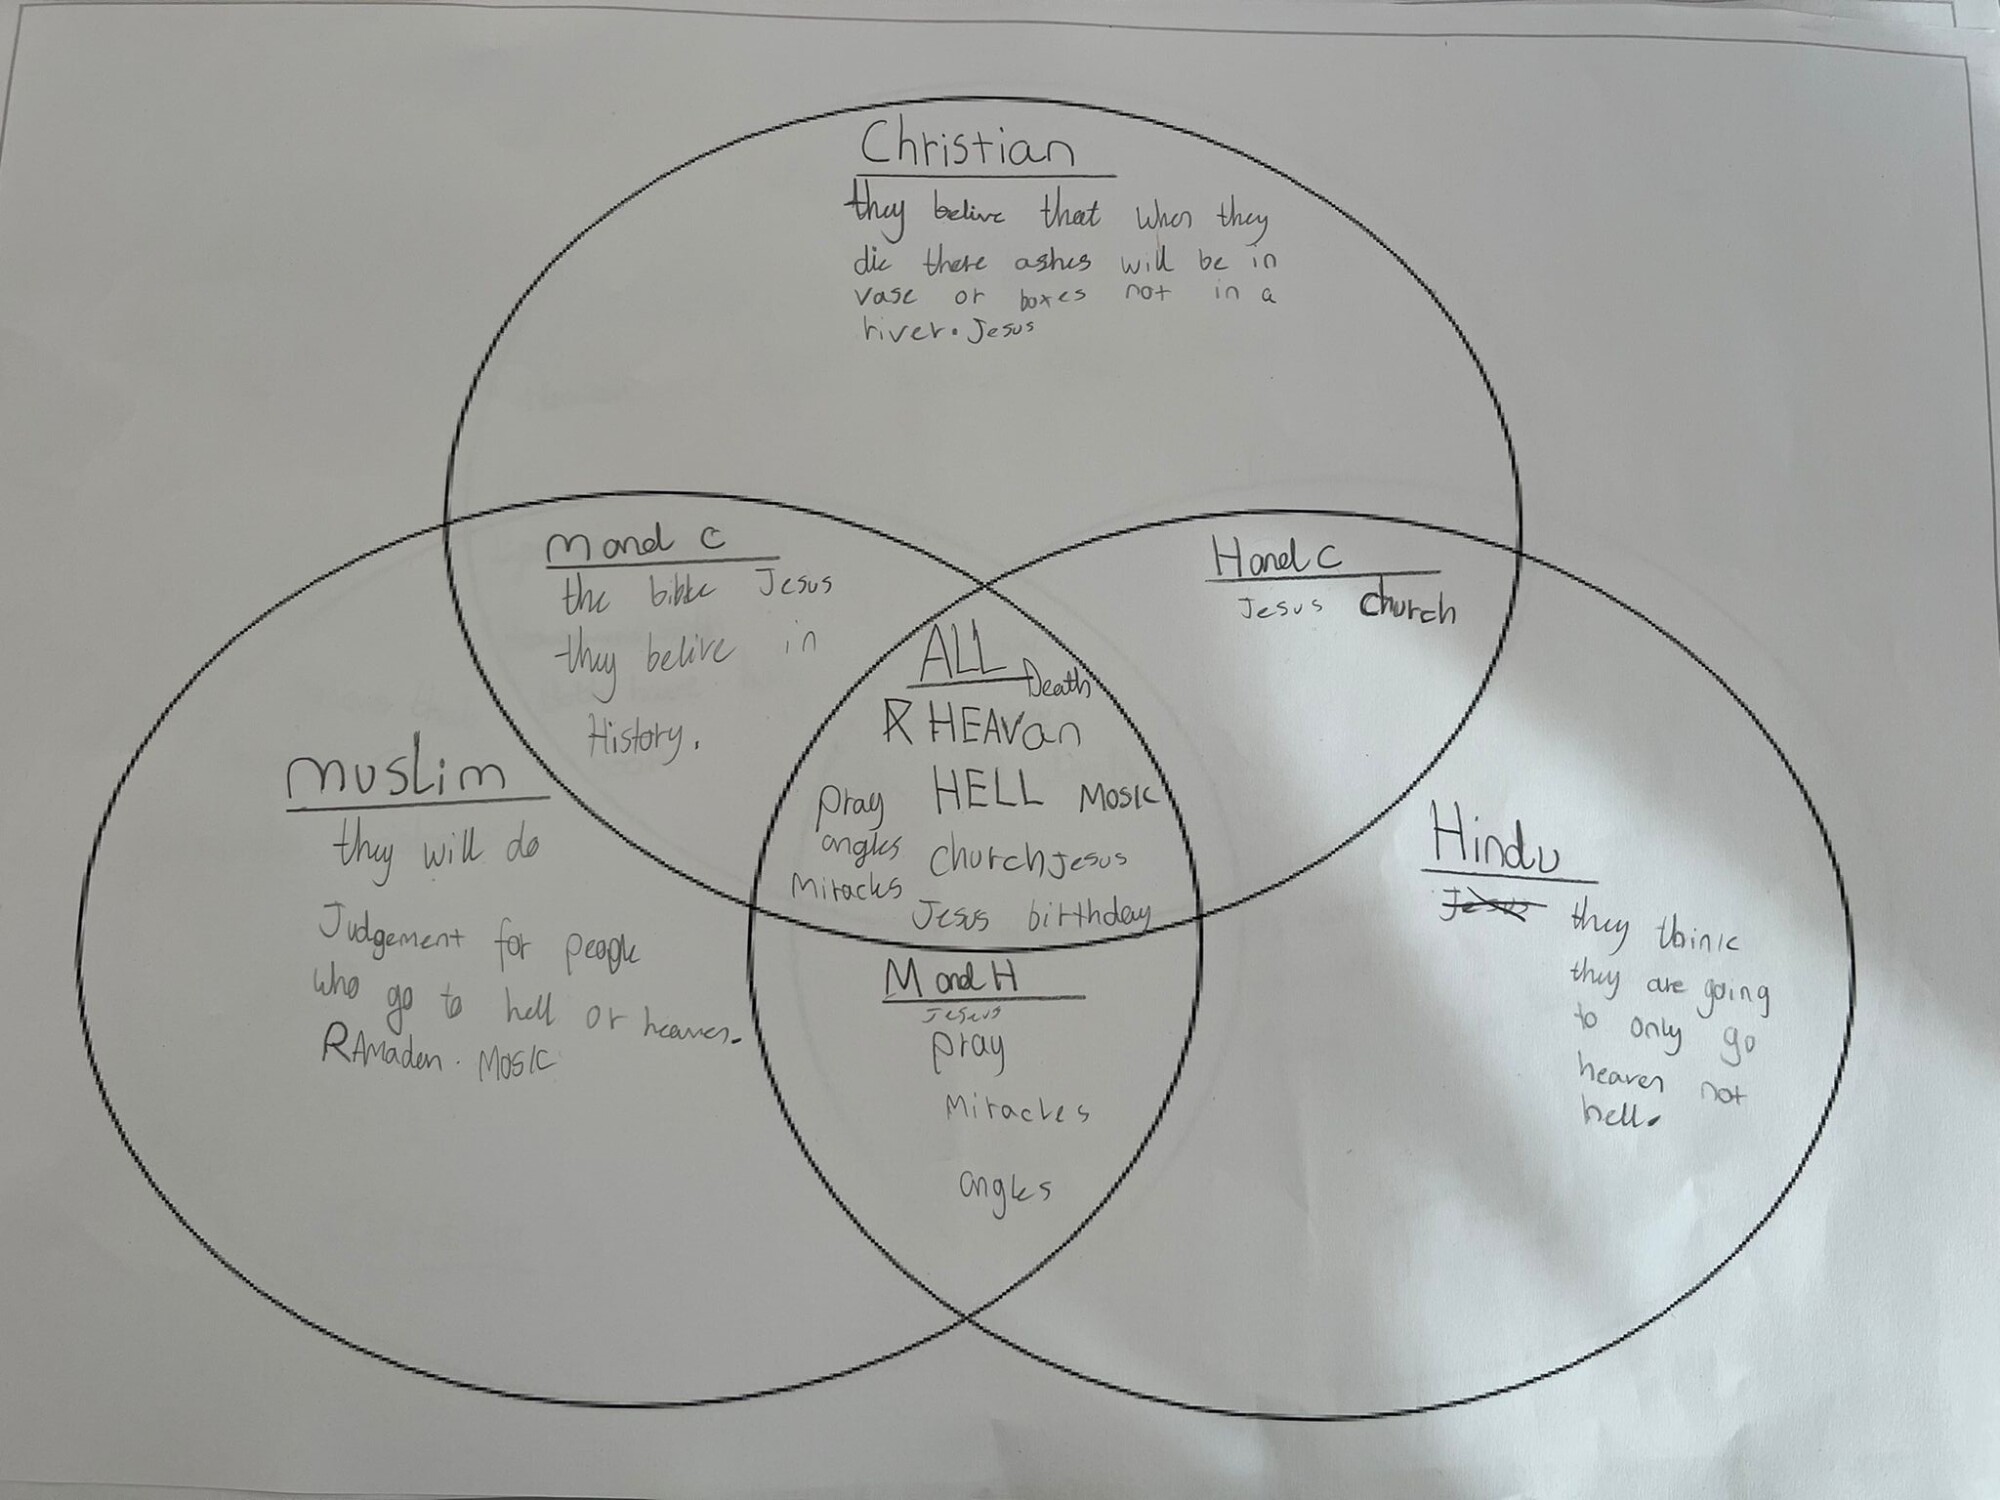 Christian
they belive that when they
die there ashes will be in
vase or boxes not in a
river. Jesus
M and C
the bible Jesus
they belive in
History.
H and C
Jesus church
ALL
Death
HEAVan
HELL
Mosic
pray
angles
church Jesus
Miracles
Jesus birthday
Muslim
they will do
Judgement for people
who go to hell or heaven.
RAmaden. Mosic
M and H
Jesus
pray
Miracles
angles
Hindu
Jesus
they think
they are going
to only go
heaven not
hell.